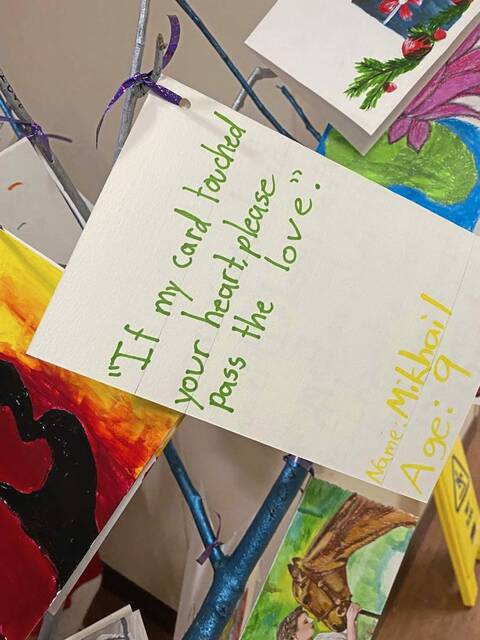 "If my card touched
your heart, please
pass the love."
Name: Mikhail
Age: 9